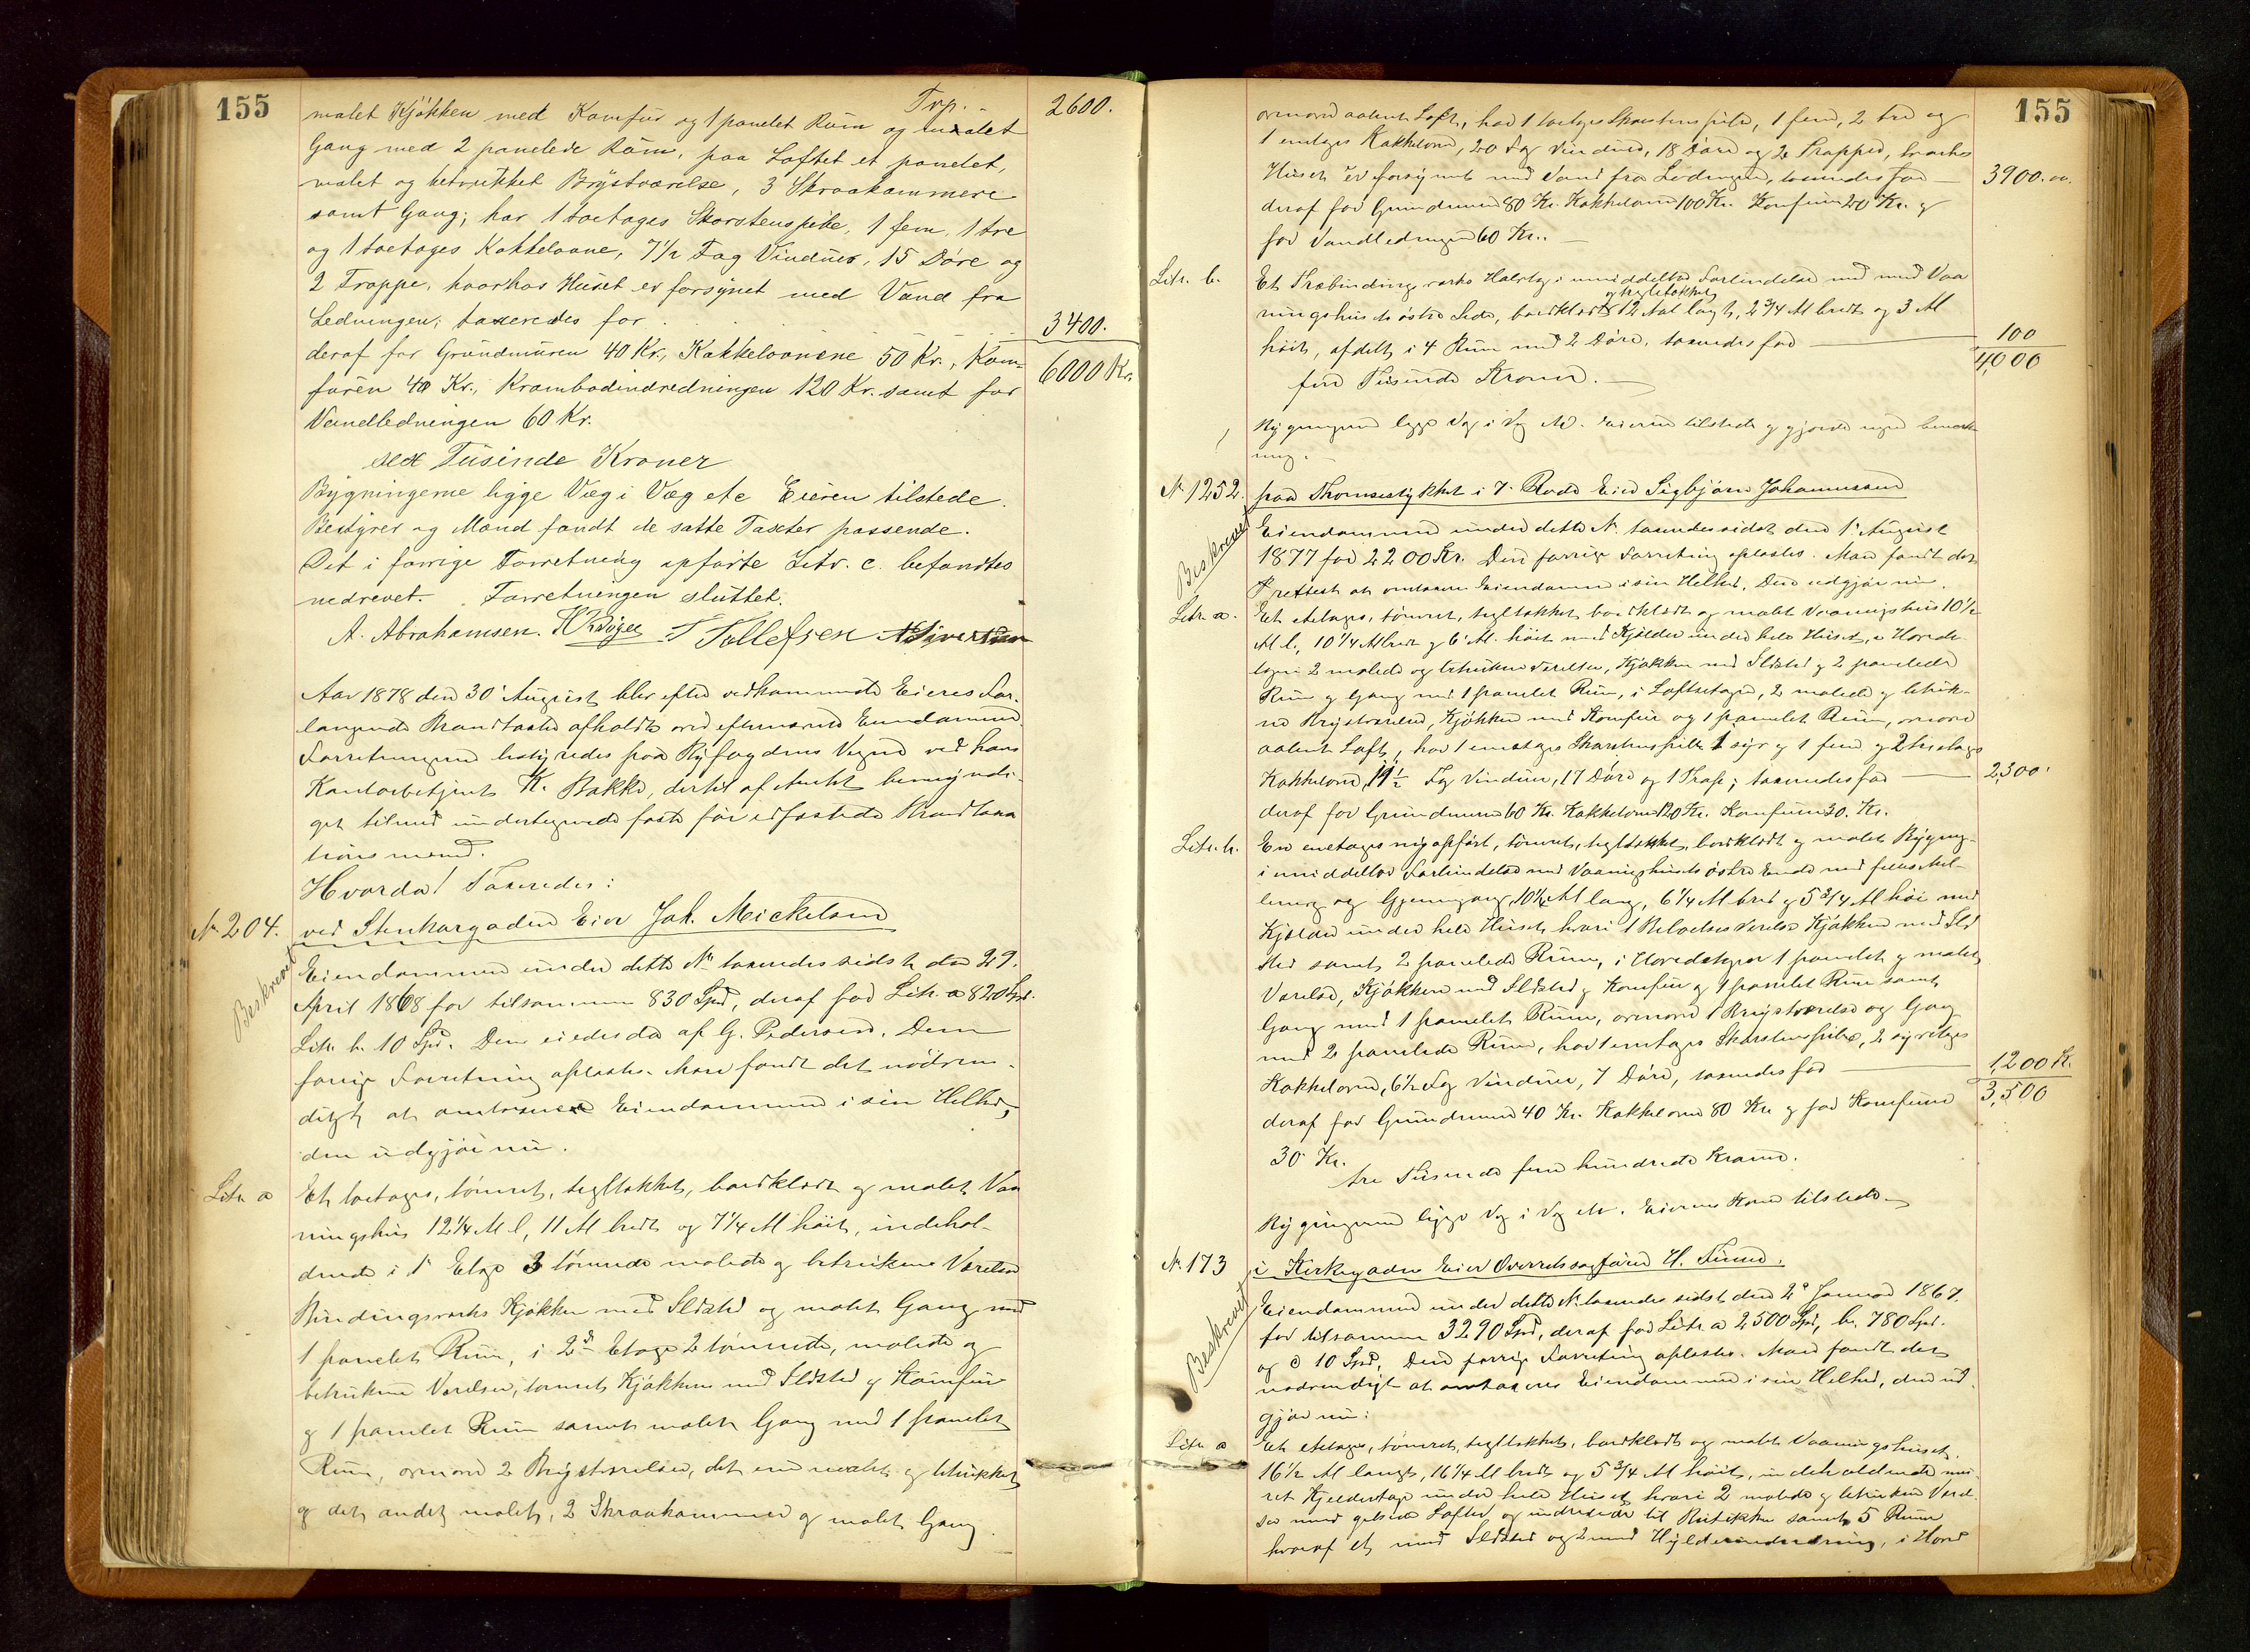 155
Trp. 2600.
malet Kjøkken med Komfur og 1 panelet Rum og umalet
Gang med 2 panelede Rum, paa Loftet et panelet,
malet og betrukket Brystværelse, 3 Skraakammere
samt Gang; har 1 toetages Skorstenspibe, 1 fem, 1 tre
og 1 toetages Kakkelovne, 7½ Fag Vinduer, 15 Døre og
2 Trappe, hvorhos Huset er forsynet med Vand fra
Ledningen; taxeredes for 3400.
deraf for Grundmuren 40 Kr., Kakkelovnene 50 Kr., Kom- 6000 Kr.
furen 40 Kr., Krambodindredningen 120 Kr. samt for
Vandledningen 60 Kr.
sex Tusinde Kroner
Bygningerne ligge Væg i Væg etc Eieren tilstede.
Bestyrer og Mænd fandt de satte Taxter passende.
Det i forrige Forretning opførte Litr. c. befandtes
nedrevet. Forretningen sluttet.
A. Abrahamsen. T Tollefsen
Aar 1878 den 30' August blev efter vedkommende Eieres For-
langende Brandtaxter afholdt over efternævnte Eiendomme.
Forretningen bestyredes paa Byfogdens Vegne ved hans
Kontorbetjent K. Bakke, dertil af Amtet bemyndi-
get tilmed undertegnede faste før edfæstede Brandtaxa
tionsmænd.
Hvorda! Taxeredes:
No 204. ved Stenkargaden Eier Joh. Mickelsen
Beskrevet
Eiendommen under dette No taxeredes sidst den 29.
April 1868 for tilsammen 830 Spd, deraf for Litr. a 820 Spd.
Litr. b. 10 Spd. Den eiedes da af G. Pedersen. Den
forrige Forretning oplæstes. Man fandt det nødven-
digt at omtaxere Eiendommen i sin Helhed,
den udgjør nu.
Litr. a Et toetages, tømret, tegltækket, bordklædt og malet Vaa
ningshus 12¼ Al l, 11 Al bredt og 7¼ Al høit, indehol-
dende i 1' Etage 3 tømrede malede og betrukne Værelser
Bindingsværks Kjøkken med Ildsted og malet Gang med
1 panelet Rum, i 2den Etage 2 tømrede, malede og
betrukne Værelser, tømret Kjøkken med Ildsted og Komfur
og 1 panelet Rum samt malet Gang med 1 panelet
Rum, ovenover 2 Brystværelser, det ene malet og betrukket
og det andet malet, 2 Skraakammere og malet Gang
155
ovenover aabent Loft, har 1 toetages Skorstenspibe, 1 fem, 2 tre og
1 enetages Kakkelovne, 20 Fag Vinduer, 18 Døre og 2 Trapper, hvorhos
Huset er forsynet med Vand fra Ledningen, taxeredes for 3900.00.
deraf for Grundmuren 80 Kr. Kakkelovne 100 Kr. Komfuren 20 Kr. og
for Vandledningen 60 Kr.
Litr. b. Et Træbindingsværks Halvtag i umiddelbar Forbindelse med Vaa
og tegltækket
ningshusets østre Side, bordklædt 12 Al langt, 2¾ Al bredt og 3 Al
høit, afdelt i 4 Rum med 2 Døre, taxeredes for 100
4,000
fire Tusinde Kroner.
Bygningerne ligge Væg i Væg etc. Eieren tilstede og gjorde ingen bemærk
ning.
No 1252. paa Thomsestykket i 7 Rode Eier Sigbjørn Johannessen
Beskrevet
Eiendommen under dette No taxeredes sidst den 1' August
1877 for 2200 Kr. Den forrige Forretning oplæstes. Man fandt det
rettest at omtaxere Eiendommen i sin Helhed. Den udgjør nu.
Litr. a. Et etetages, tømret, tegltækket bordklædt og malet Vaaningshus 10½
Al l., 10¼ Al bredt og 6 Al. høit med Kjælder under hele Huset, i Hoved-
etagen 2 malede og betrukne Værelser, Kjøkken med Ildsted og 2 panelede
Rum og Gang med 1 panelet Rum, i Loftsetagen, 2 malede og betruk-
ne Brystværelser, Kjøkken med Komfur og 1 panelet Rum, ovenover
aabent Loft, har 1 enetages Skorstenspibe 1 syv og 1 fem og 2 treetages
Kakkelovne, 11½ Fag Vinduer, 17 Døre og 1 Trap; taxeredes for 2,300.
deraf for Grundmuren 60 Kr. Kakkelovne 120 Kr. Komfuren 30. Kr.
Litr. b. En enetages nyopført, tømret, tegltækket, bordklædt og malet Bygning
i umiddelbar Forbindelse med Vaaningshusets østre Ende med
og Gjennemgang, 10¼ Al lang, 6¼ Al bred og 5¾ Al høi med
Kjælder under hele Huset hvori 1 Beboelses Værelse Kjøkken med Ild
sted samt 2 panelede Rum, i Hovedetagen 1 panelet og malet
Værelse, Kjøkken med Ildsted og Komfur og 1 panelet Rum samt
Gang med 1 panelet Rum, ovenover 1 Brystværelse og Gang
med 2 panelede Rum, har 1 enetages Skorstenspibe, 2 syvetages
Kakkelovne, 6½ Fag Vinduer, 7 Døre, taxeredes for 1,200 Kr.
deraf for Grundmuren 40 Kr. Kakkelovne 80 Kr og for Komfuren 3,500
30 Kr.
tre Tusinde fem hundrede Kroner.
Bygningerne ligge Væg i Væg etc. Eierens Kone tilstede.
No 173 i Kirkegaden Eier Overretssagfører H. Finne.
Beskrevet
Eiendommen under dette No taxeredes sidst den 2' Januar 1867.
for tilsammen 3290 Spd, deraf for Litr. a 2500 Spd, b. 780 Spd.
og c 10 Spd. Den forrige Forretning oplæstes. Man fandt det
nødvendigt at omtaxere Eiendommen i sin Helhed, den ud-
gjør nu:
Litr. a Et etetages, tømret, tegltækket, bordklædt og malet Vaaningshuset,
16½ Al langt, 16¼ Al bredt og 5¾ Al høit, indeholdende mu-
ret Kjelderetage under hele Huset hvori 2 malede og betrukne Værel-
ser med gibsede Lofter og indredede til Butikker samt 5 Rum
hvoraf et med Ildsted og 2 med Hylderindredning, i Hoved